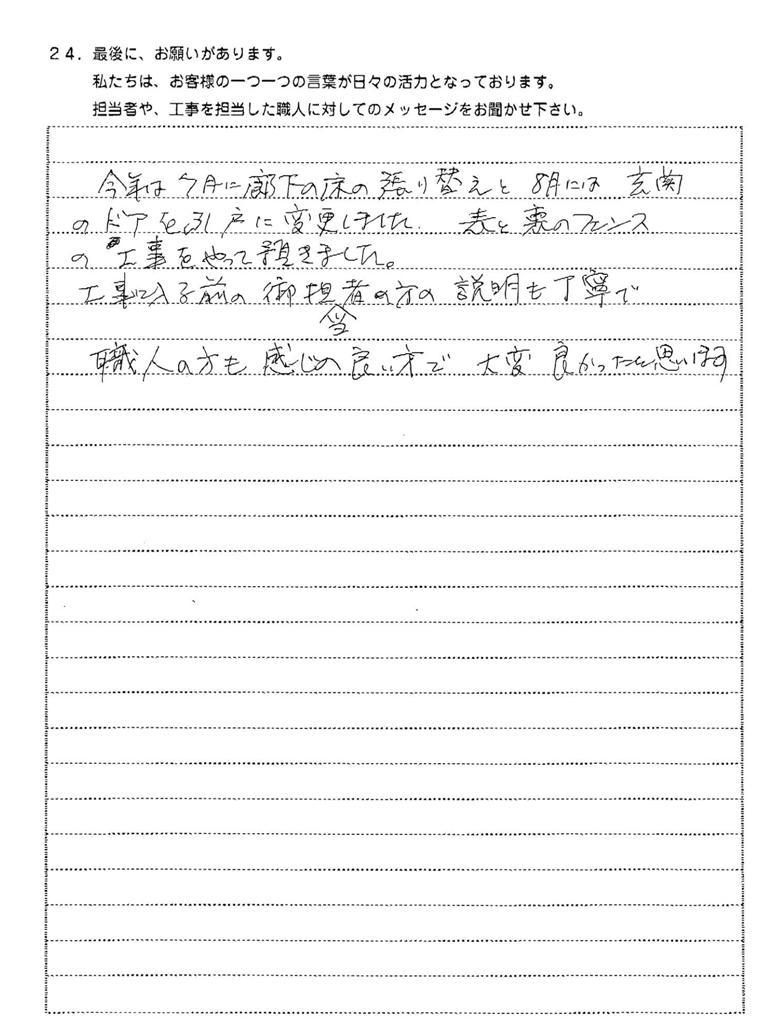 24. 最後に、お願いがあります。
私たちは、お客様の一つ一つの言葉が日々の活力となっております。
担当者や、工事を担当した職人に対してのメッセージをお聞かせ下さい。
今年は7月に廊下の床の張り替えと 8月には 玄関
のドアを引戸に変更しました 表と裏のフェンス
の工事をやって頂きました。
工事に入る前の御担当者の方の説明も丁寧で
職人の方も感じの良い方で 大変良かったと思います